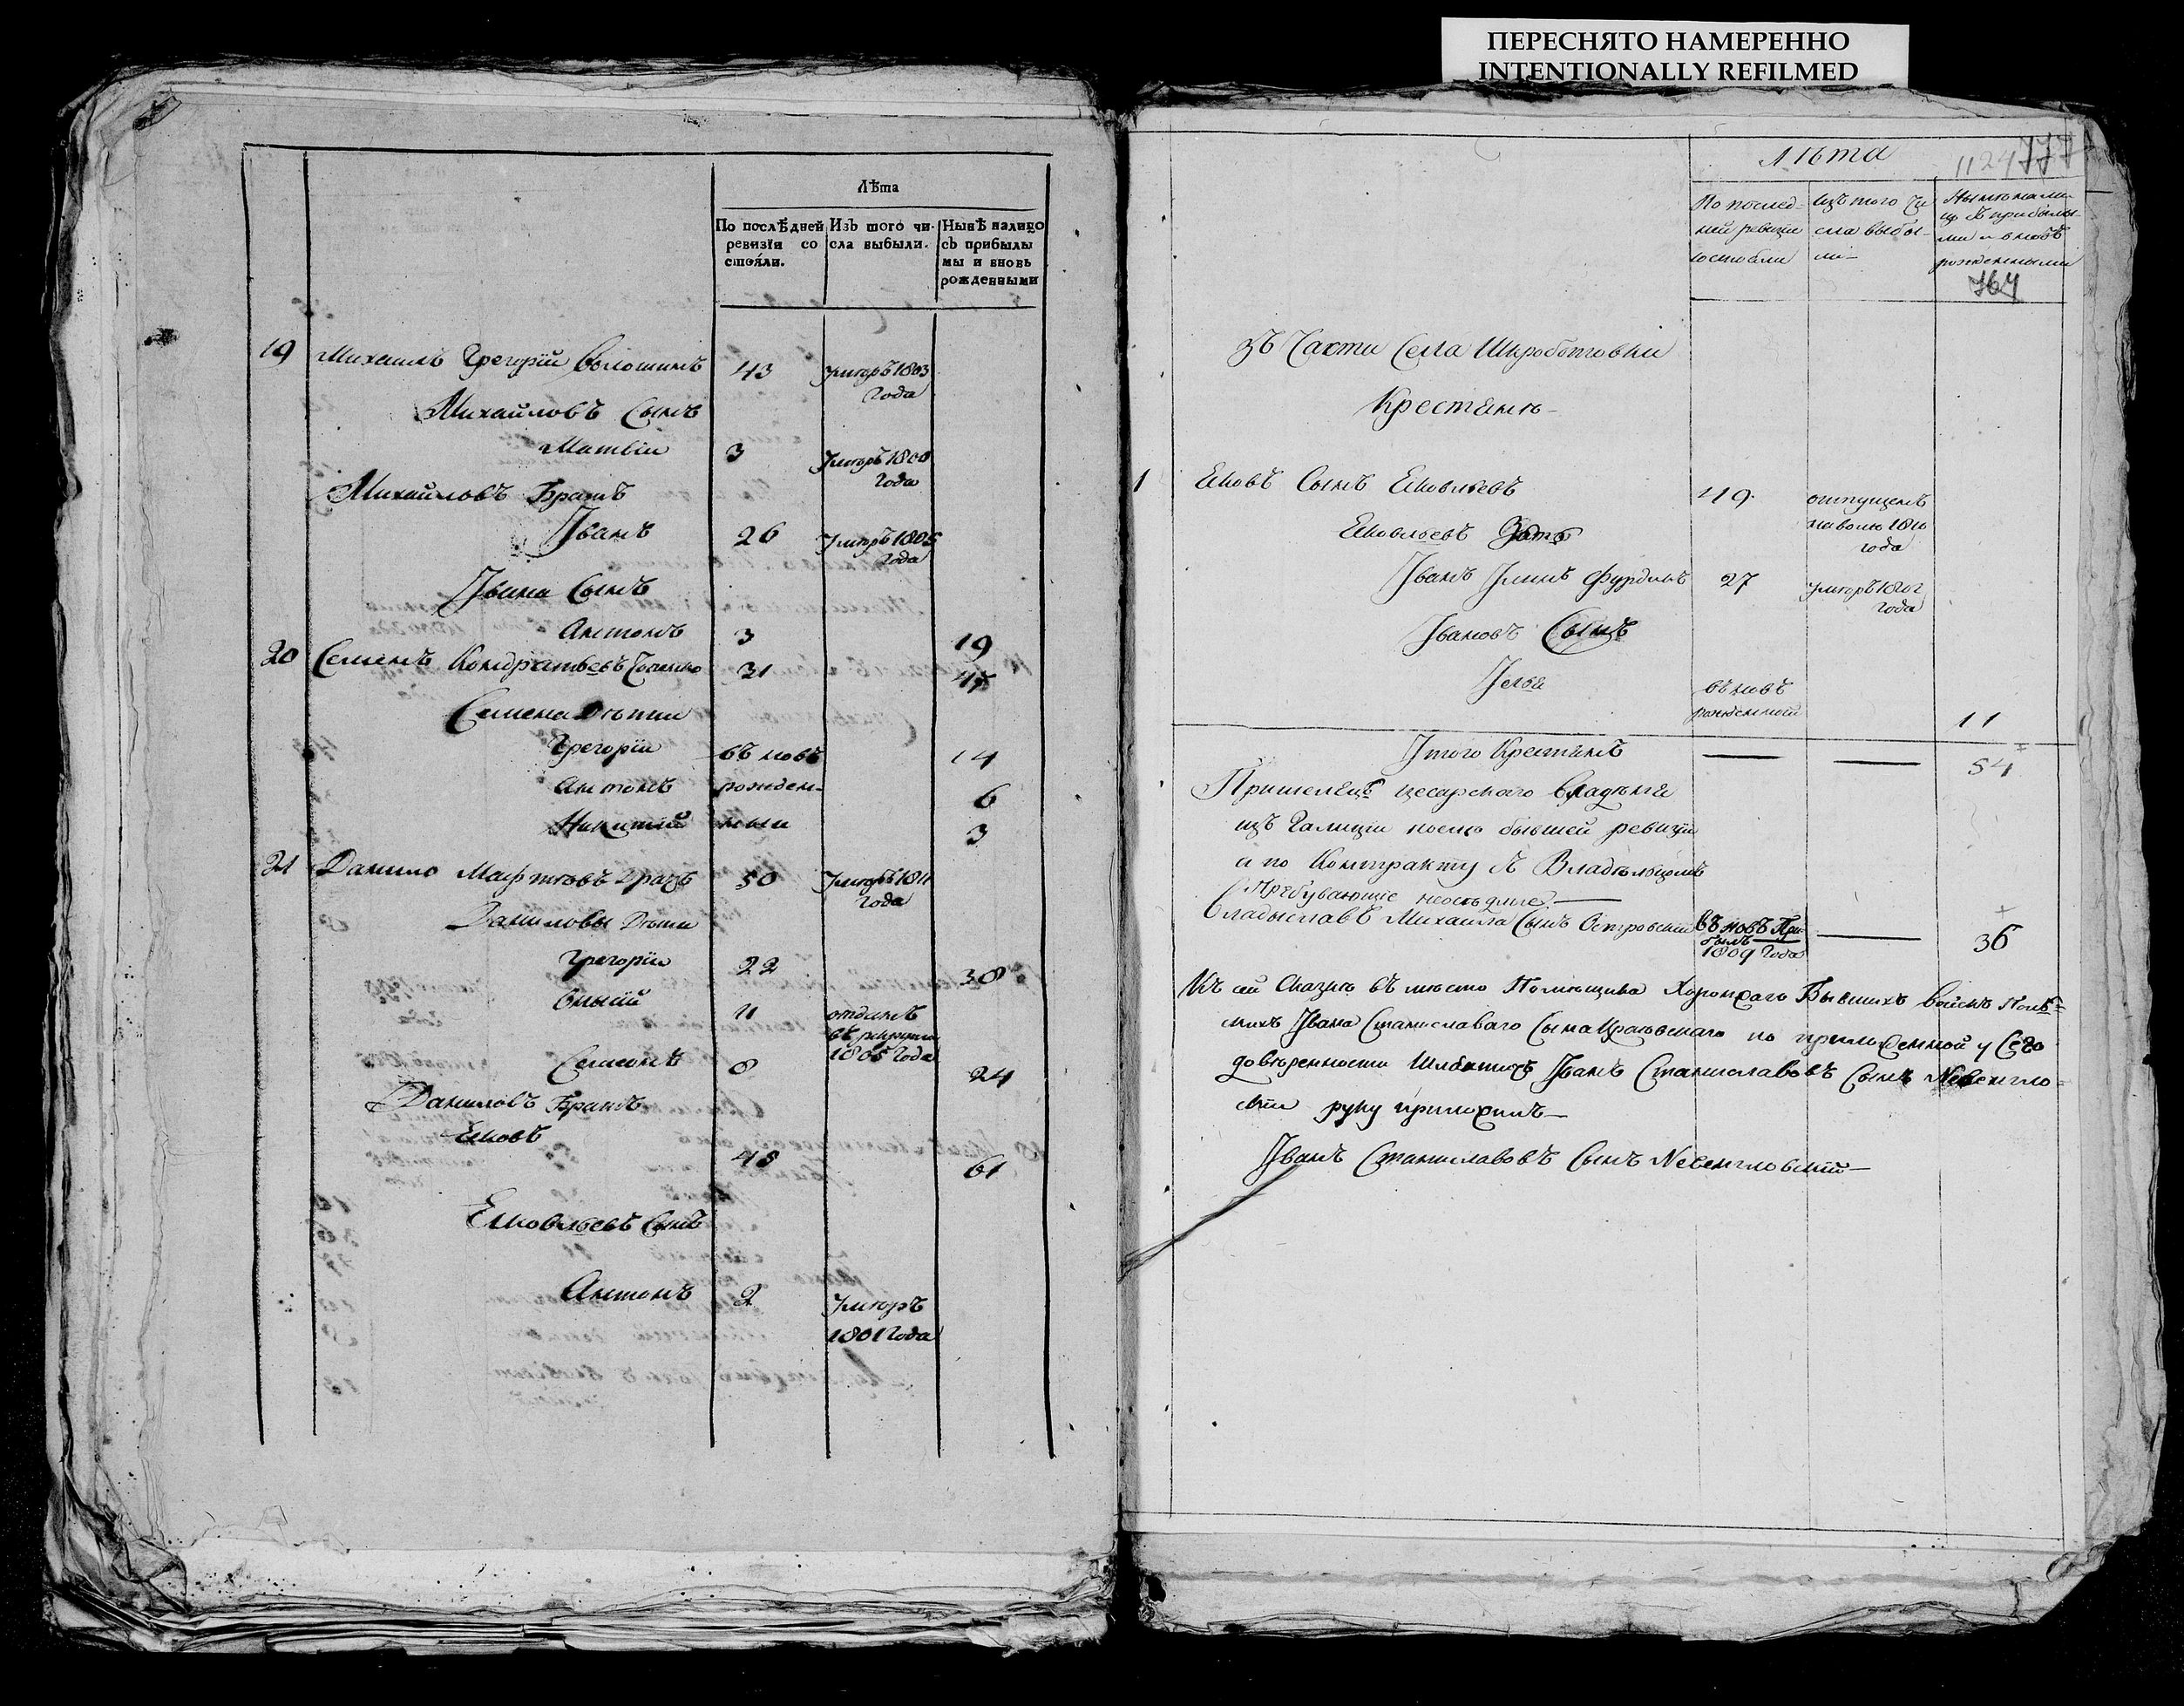 ПЕРЕСНЯТО НАМЕРЕННО
INTENTIONALLY REFILMED
Лѣта
По послѣдней ревизіи состояли.
Изъ того числа выбыли.
Нынѣ налицо съ прибылыми и вновь рожденными
19 Михаилъ Грегорїи Волошинъ 43 Умеръ 1803 Года
Михайловъ Сынъ
Матвіи 3 Умеръ 1800 Года
Михайловъ Братъ
Іванъ 26 Умеръ 1805 Года
Івана Сынъ
Антонъ 3 19
20 Семенъ Кондратьевъ 31 45
Семена Дѣти
Грегорїи въ новъ 14
Антонъ рожден- 6
Никитій ныи 3
21 Данило 50 Умеръ 1811 Года
Даниловы Дѣти
Грегорїи 22 38
11 отданъ въ рекруты 1805 Года
Семіонъ 8 24
Даниловъ Братъ
Яковъ 48 61
Яковлѣевъ Сынъ
Антонъ 2 Умеръ 1801 Года
Лѣта
1124 777
По послед-ней ревизіи состояли
изъ того чи-сла выбы-ли
Нынѣ на ли-цо съ прибылы-ми и вновъ рожденными
767
зъ Части Села Широботовки
Крестяне
1 Яковъ Сынъ Яковлѣевъ 49 отпущенъ на волю 1810 года
Яковлѣевъ Зять
Іванъ 27 умеръ 1802 Года
Івановъ Сынъ
Ілья въ новъ рожденной 11
Ітого Крестянъ — — 54
Пришелецъ цесарского Владѣния
изъ Галиции после бывшей ревизіи
и по Контракту съ Владѣльцомъ
Пребувающие
Владыславъ Михаила Сынъ Островский въ новъ При-былъ 1809 Года — 36
Къ сей Сказкѣ въ место Помещика Хоронжаго Бывшихъ Войскъ Поль-
скихъ Івана Станиславаго Сына по приложенной у Сего
довѣренности Шляхтичъ Іванъ Станиславовъ Сынъ
руку приложилъ—
Іванъ Станиславовъ Сынъ